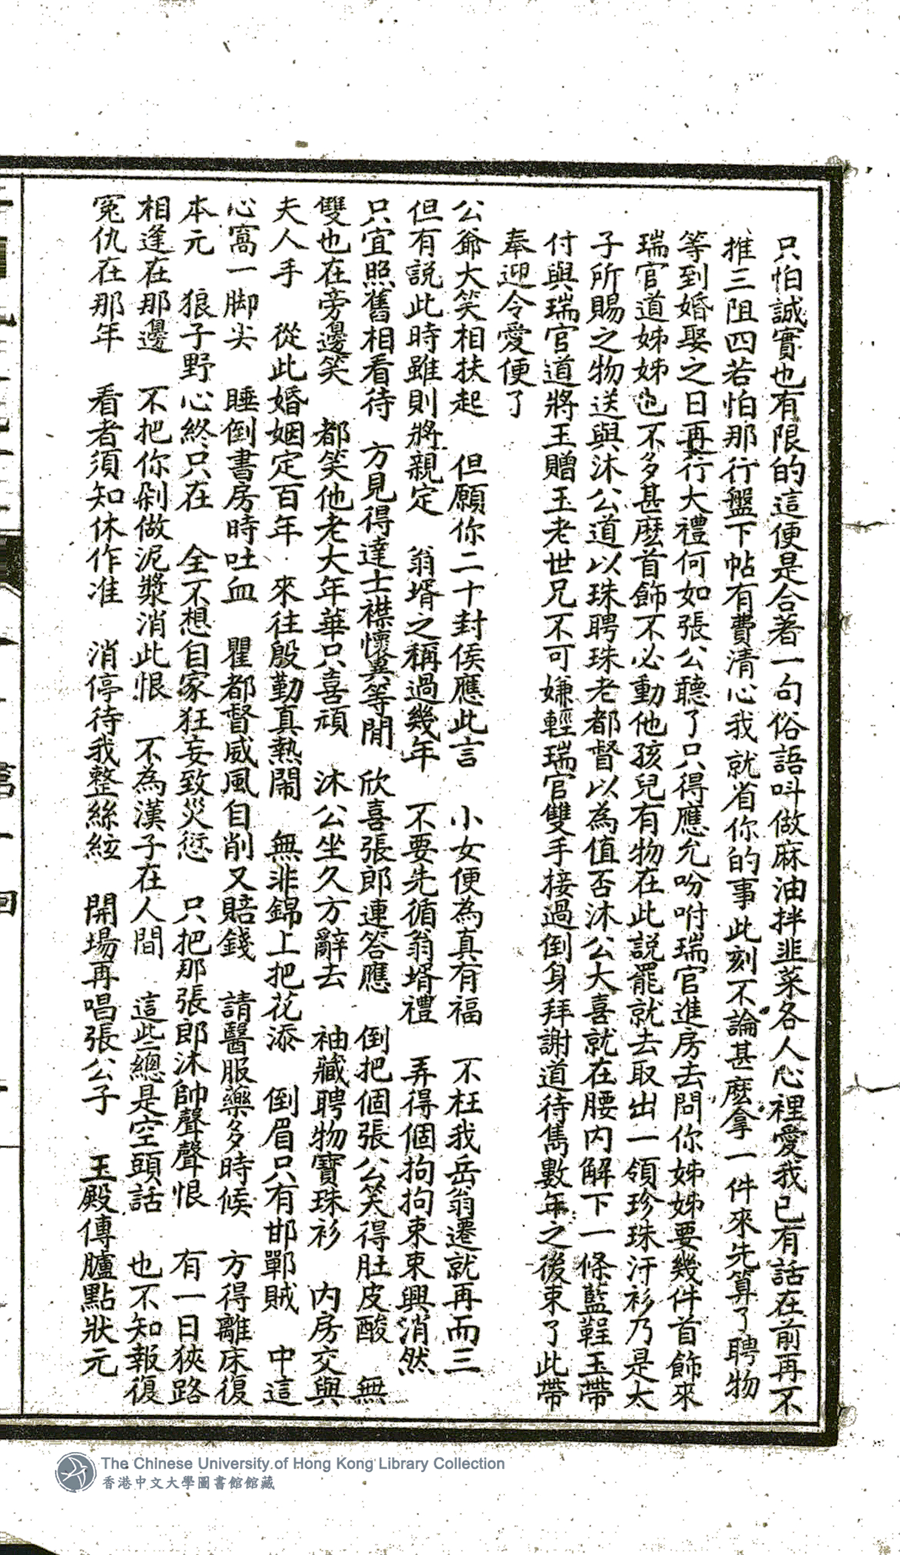 只怕誠實也有限的這便是合著一句俗語呌做麻油拌韭菜各人心裡愛我已有話在前再不
推三阻四若怕那行盤下帖有費清心我就省你的事此刻不論甚麽拿一件來先算了聘物
等到婚娶之日再行大禮何如張公聽了只得應允吩咐瑞官進房去問你姊姊要幾件首飾來
瑞官道姊姊也不多甚麽首飾不必動他孩兒有物在此説罷就去取出一領珍珠汗衫乃是太
子所賜之物送與沐公道以珠聘珠老都督以為值否沐公大喜就在腰内解下一條藍鞓玉帶
付與瑞官道將王贈王老世兄不可嫌輕瑞官雙手接過倒身拜謝道待雋數年之後束了此帶
奉迎令愛便了
公爺大笑相扶起　但願你二十封侯應此言　小女便為真有福　不枉我岳翁遷就再而三
但有説此時雖則將親定　翁壻之稱過幾年　不要先循翁壻禮　弄得個拘拘束束興消然
只宜照舊相看待　方見得達士襟懷異等閒　欣喜張郎連答應　倒把個張公笑得肚皮酸　無
雙也在旁邊笑　都笑他老大年華只喜頑　沐公坐久方辭去　袖藏聘物寶珠衫　内房交與
夫人手　從此婚姻定百年　來往殷勤真熱閙　無非錦上把花添　倒眉只有邯鄲賊　中這
心窩一脚尖　睡倒書房時吐血　瞿都督威風自削又賠錢　請醫服藥多時候　方得離床復
本元　狼子野心終只在　全不想自家狂妄致災愆　只把那張郎沐帥聲聲恨　有一日狹路
相逢在那邊　不把你剁做泥漿消此恨　不為漢子在人間　這些總是空頭話　也不知報復
冤仇在那年　看者須知休作准　消停待我整絲絃　開場再唱張公子　玉殿傳臚點狀元
The Chinese University of Hong Kong Library Collection
香港中文大學圖書館館藏